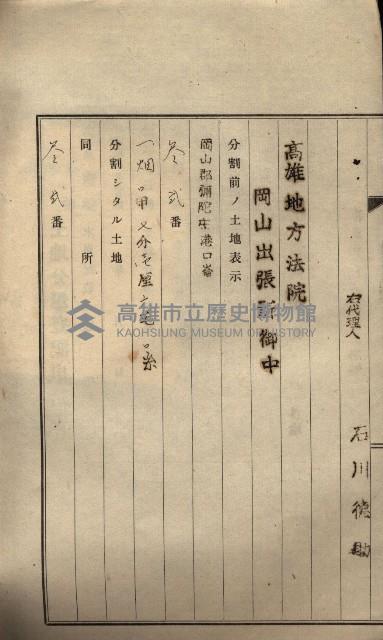 右代理人
石川徳助
高雄地方法院
岡山出張所御中
分割前ノ土地表示
岡山郡彌陀庄港口崙
参弐番
一畑
分割シタル土地
同所
参弐番
高雄市立歷史博物館
KAOHSIUNG MUSEUM OF HISTORY